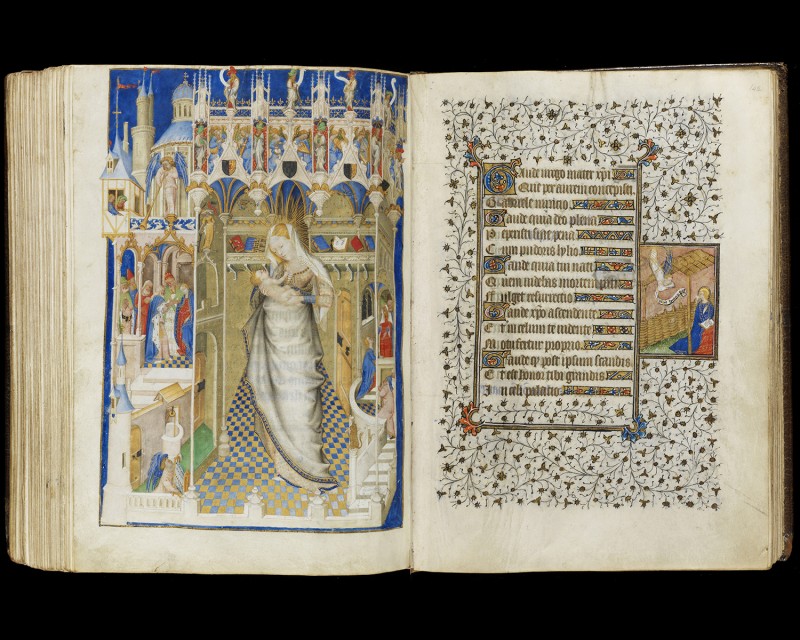 Gaude uirgo mater xpi
Que per aurem concepisti
Gabriele nuntio
Gaude quia deo plena
Peperisti sine pena
Cum pudoris lylio
Gaude quia tui nati
Quem uidebas mortem pati
Fulget resurrectio
Gaude xpo ascendente
Et in celum te uidente
fertur proprio
Gaude q post ipsum scandis
Et est honor tibi grandis
In celi palatio